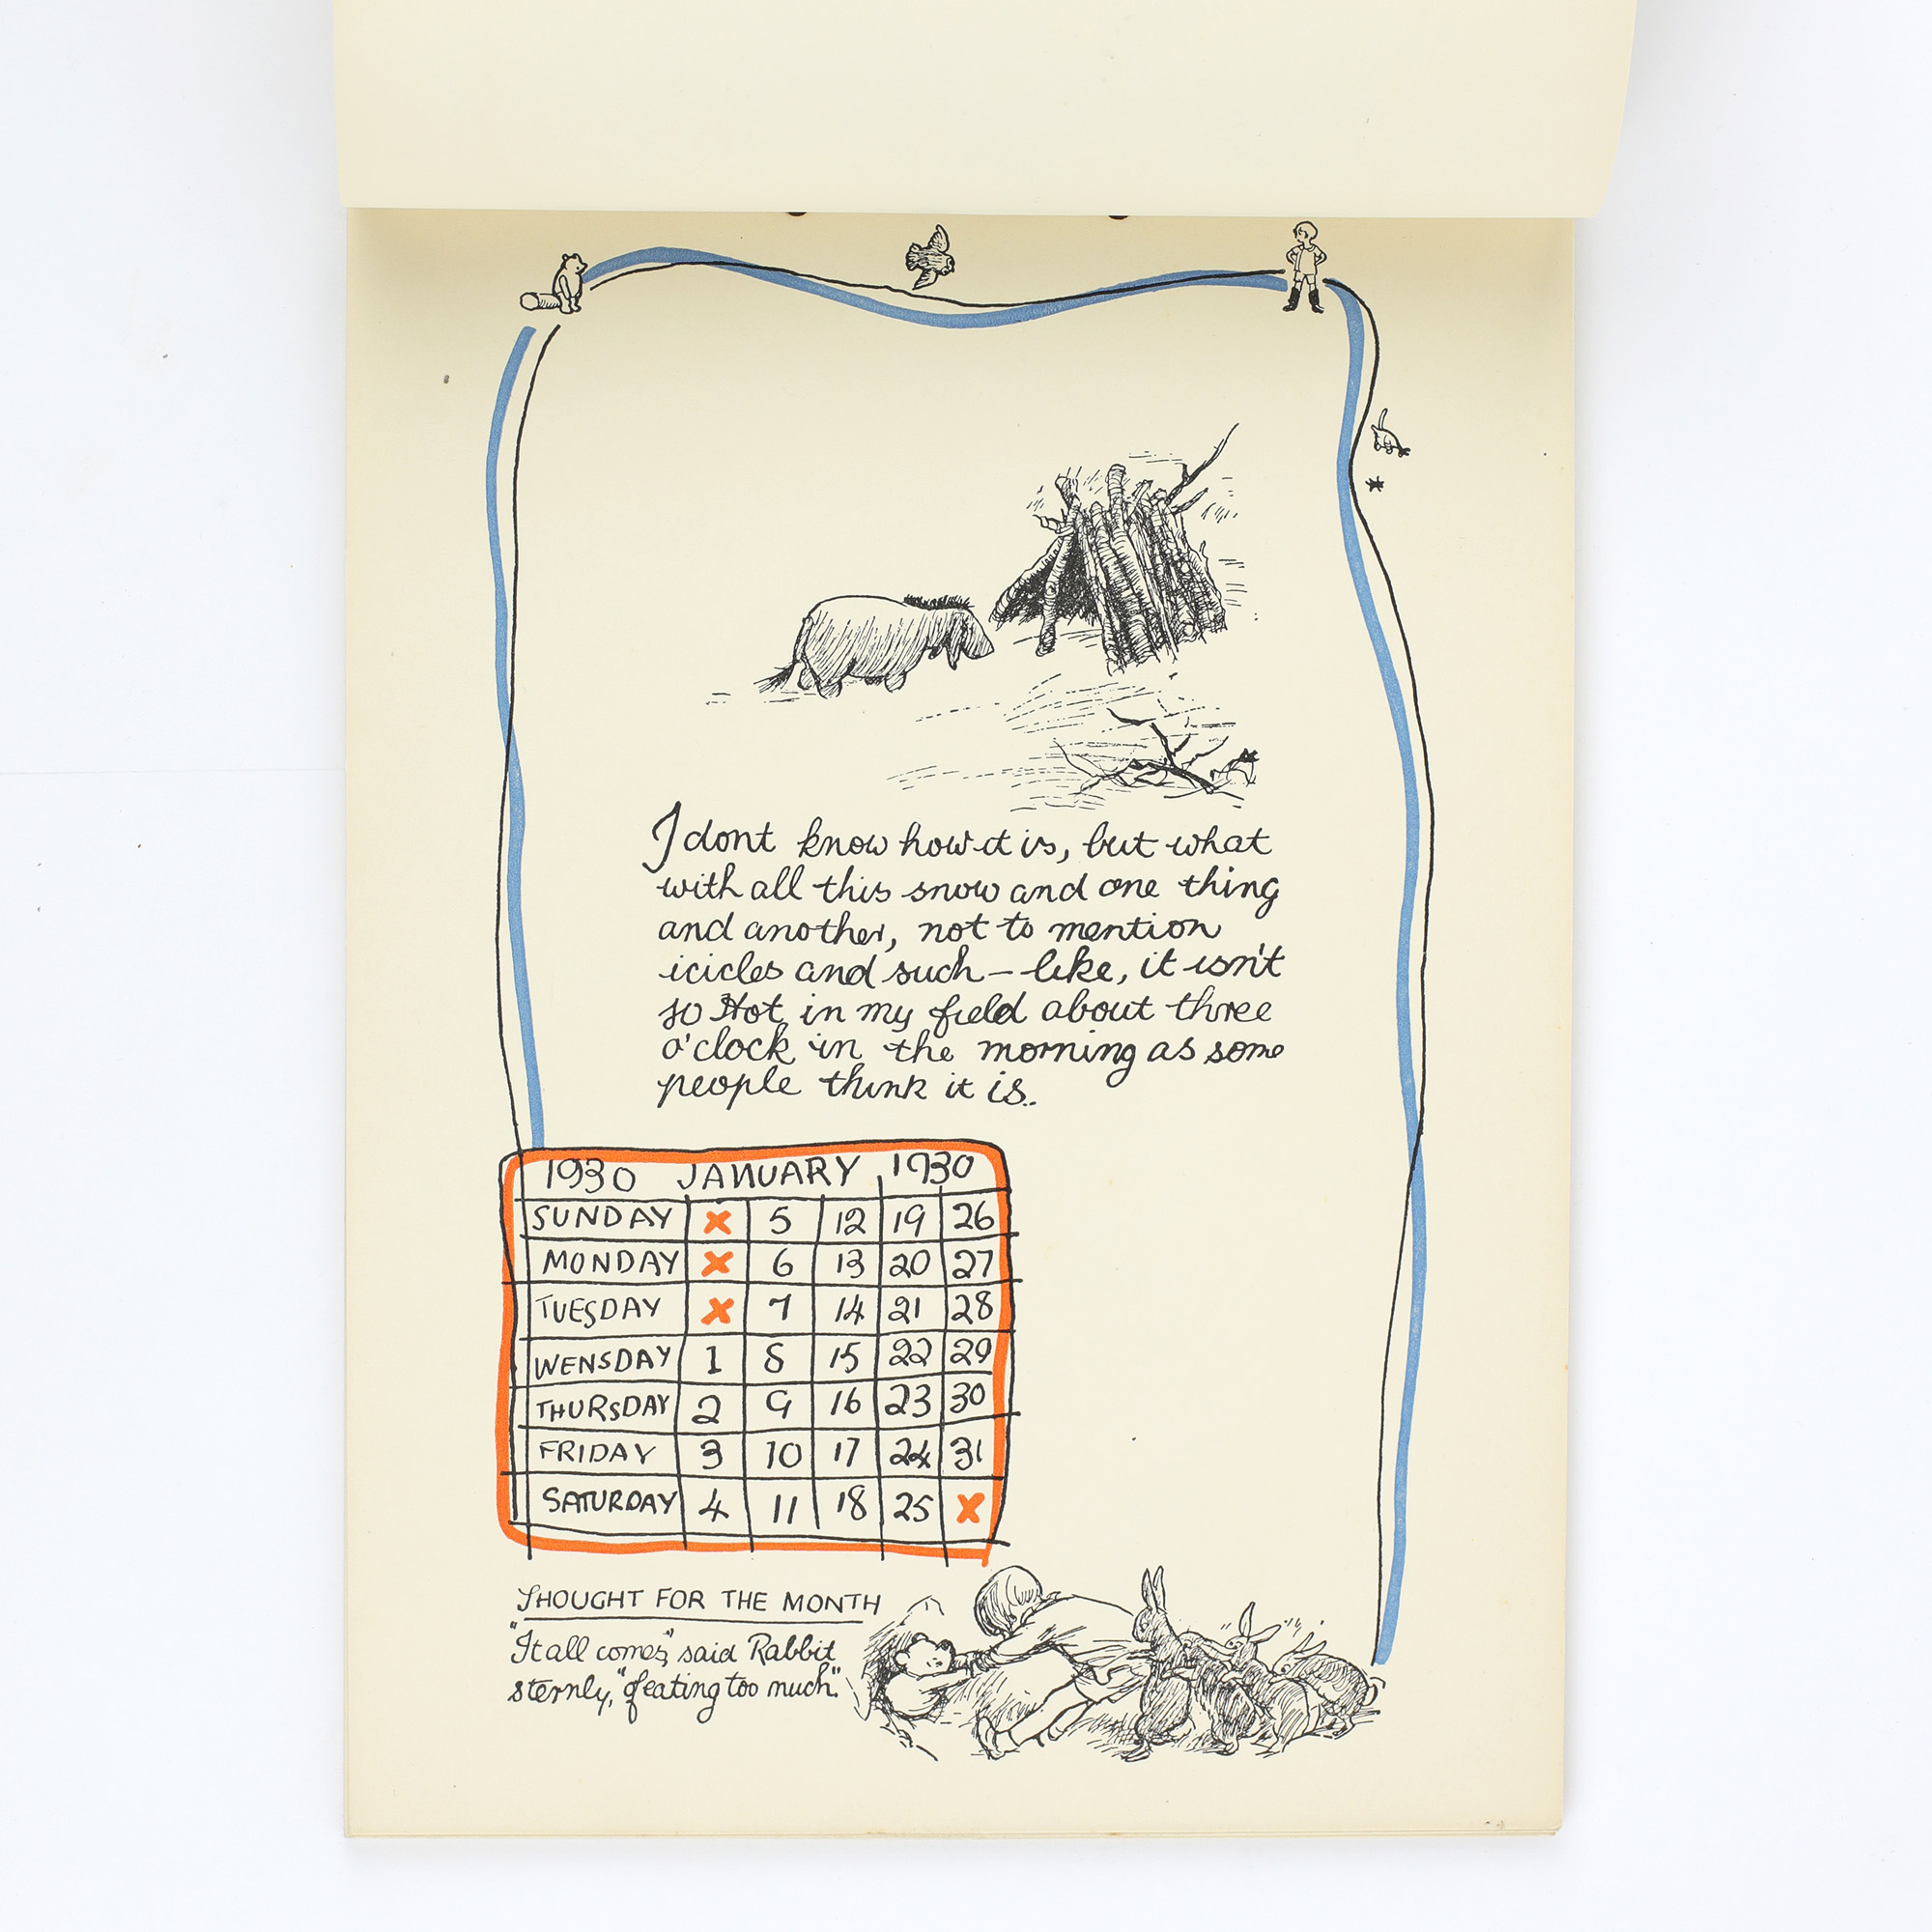 I dont know how it is, but what
with all this snow and one thing
and another, not to mention
icicles and such-like, it isn't
so Hot in my field about three
o'clock in the morning as some
people think it is..
1930 JANUARY 1930
SUNDAY x 5 12 19 26
MONDAY x 6 13 20 27
TUESDAY x 7 14 21 28
WENSDAY 1 8 15 22 29
THURSDAY 2 9 16 23 30
FRIDAY 3 10 17 24 31
SATURDAY 4 11 18 25 x
THOUGHT FOR THE MONTH
"It all comes," said Rabbit
sternly, "of eating too much."